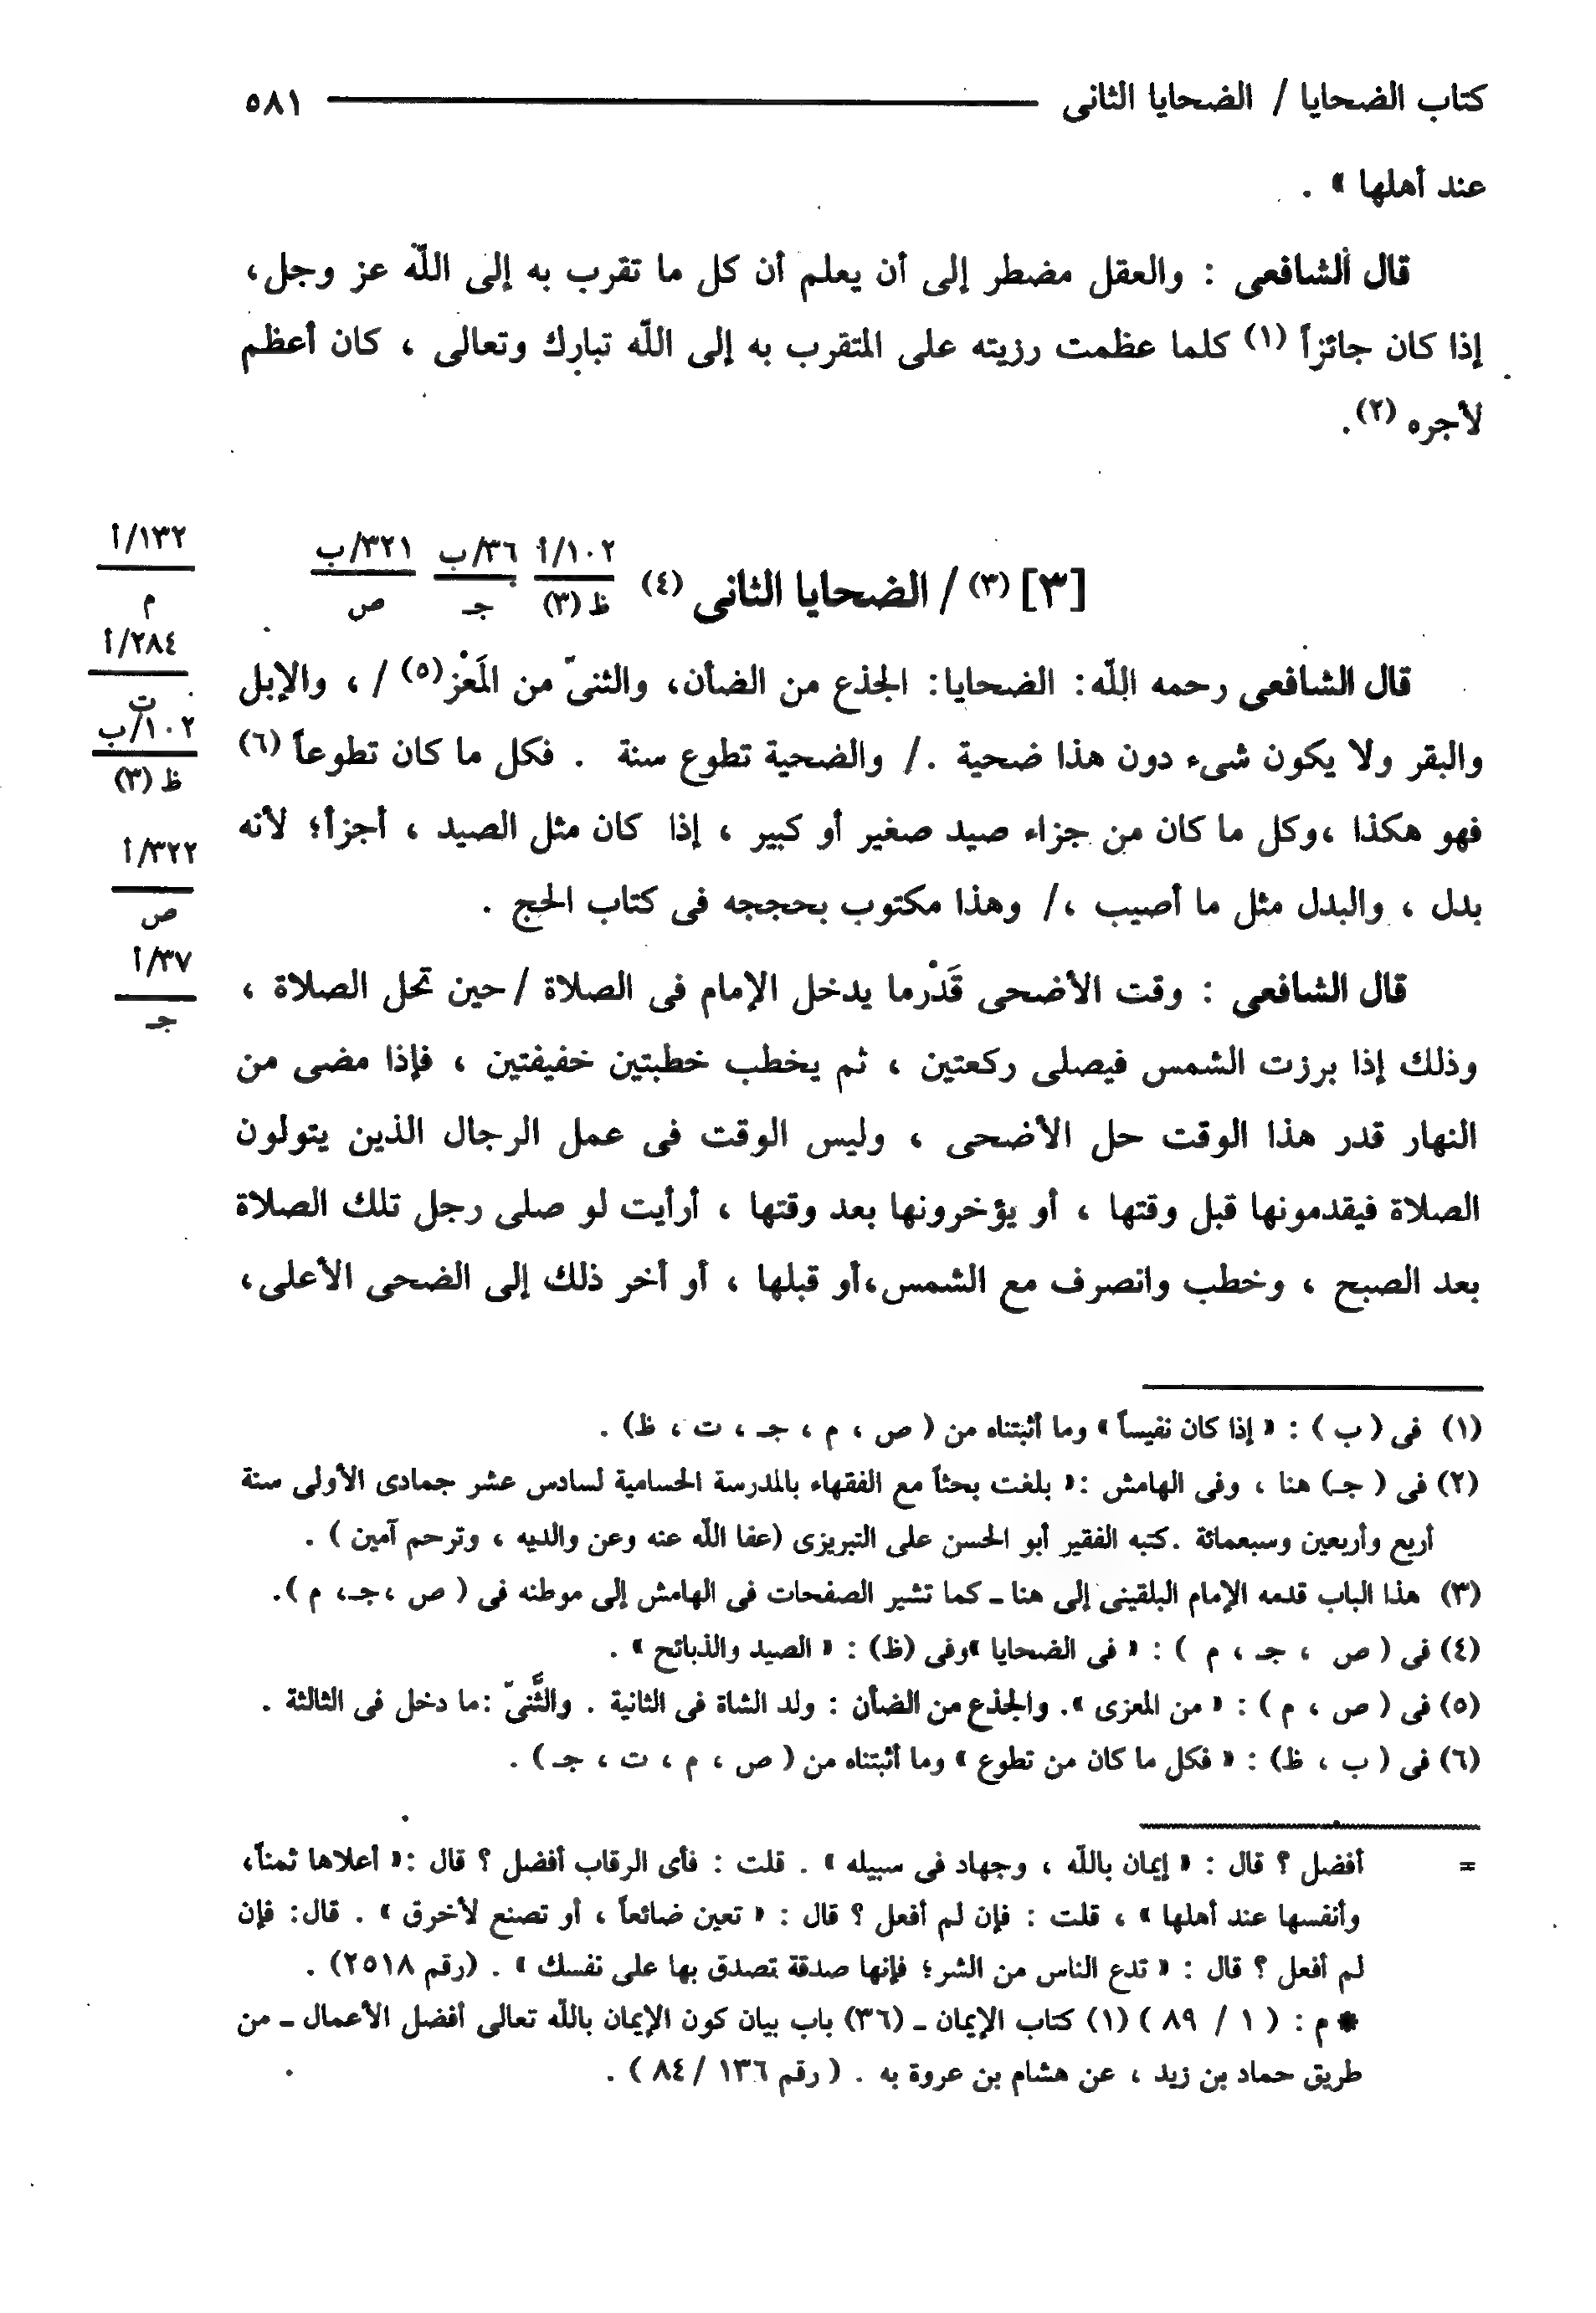 كتاب الضحايا / الضحايا الثانى ٥٨١
عند أهلها » .
قال الشافعى : والعقل مضطر إلى أن يعلم أن كل ما تقرب به إلى اللّه عز وجل،
إذا كان جائزاً (١) كلما عظمت رزيته على المتقرب به إلى اللّه تبارك وتعالى ، كان أعظم
لأجره (٢).
[٣] (٣) / الضحايا الثانى (٤) ١٠٢/أ ٣٦/ب ٣٢١/ب ١٣٢/أ
ظ (٣) جـ ص م
٢٨٤/أ
ت
قال الشافعى رحمه اللّه: الضحايا: الجذع من الضأن، والثنىّ من المَعْز(٥) / ، والإبل
١٠٢/ب
ظ (٣)
والبقر ولا يكون شىء دون هذا ضحية ./ والضحية تطوع سنة . فكل ما كان تطوعاً (٦)
فهو هكذا ،وكل ما كان من جزاء صيد صغير أو كبير ، إذا كان مثل الصيد ، أجزأ؛ لأنه
٣٢٢/أ
ص
بدل ، والبدل مثل ما أصيب ،/ وهذا مكتوب بحججه فى كتاب الحج .
٣٧/أ
جـ
قال الشافعى : وقت الأضحى قَدْرما يدخل الإمام فى الصلاة /حين تحل الصلاة ،
وذلك إذا برزت الشمس فيصلى ركعتين ، ثم يخطب خطبتين خفيفتين ، فإذا مضى من
النهار قدر هذا الوقت حل الأضحى ، وليس الوقت فى عمل الرجال الذين يتولون
الصلاة فيقدمونها قبل وقتها ، أو يؤخرونها بعد وقتها ، أرأيت لو صلى رجل تلك الصلاة
بعد الصبح ، وخطب وانصرف مع الشمس،أو قبلها ، أو أخر ذلك إلى الضحى الأعلى،
(١) فى ( ب ) : « إذا كان نفيساً » وما أثبتناه من ( ص ، م ، جـ ، ت ، ظ) .
(٢) فى ( جـ) هنا ، وفى الهامش :« بلغت بحثاً مع الفقهاء بالمدرسة الحسامية لسادس عشر جمادى الأولى سنة
أربع وأربعين وسبعمائة .كتبه الفقير أبو الحسن على التبريزى (عفا اللّه عنه وعن والديه ، وترحم آمين ) .
(٣) هذا الباب قدمه الإمام البلقينى إلى هنا ـ كما تشير الصفحات فى الهامش إلى موطنه فى ( ص ،جـ، م ).
(٤) فى ( ص ، جـ ، م ) : « فى الضحايا »وفى (ظ) : « الصيد والذبائح » .
(٥) فى ( ص ، م ) : « من المعزى ». والجذع من الضأن : ولد الشاة فى الثانية . والثَّنىّ :ما دخل فى الثالثة .
(٦) فى ( ب ، ظ) : « فكل ما كان من تطوع » وما أثبتناه من ( ص ، م ، ت ، جـ ) .
= أفضل ؟ قال : « إيمان باللّه ، وجهاد فى سبيله » . قلت : فأى الرقاب أفضل ؟ قال :« أعلاها ثمناً،
وأنفسها عند أهلها » ، قلت : فإن لم أفعل ؟ قال : « تعين ضائعاً ، أو تصنع لأخرق » . قال: فإن
لم أفعل ؟ قال : « تدع الناس من الشر؛ فإنها صدقة تصدق بها على نفسك » . (رقم ٢٥١٨) .
* م : ( ١ / ٨٩ ) (١) كتاب الإيمان ـ (٣٦) باب بيان كون الإيمان باللّه تعالى أفضل الأعمال ـ من
طريق حماد بن زيد ، عن هشام بن عروة به . ( رقم ١٣٦ / ٨٤ ) .